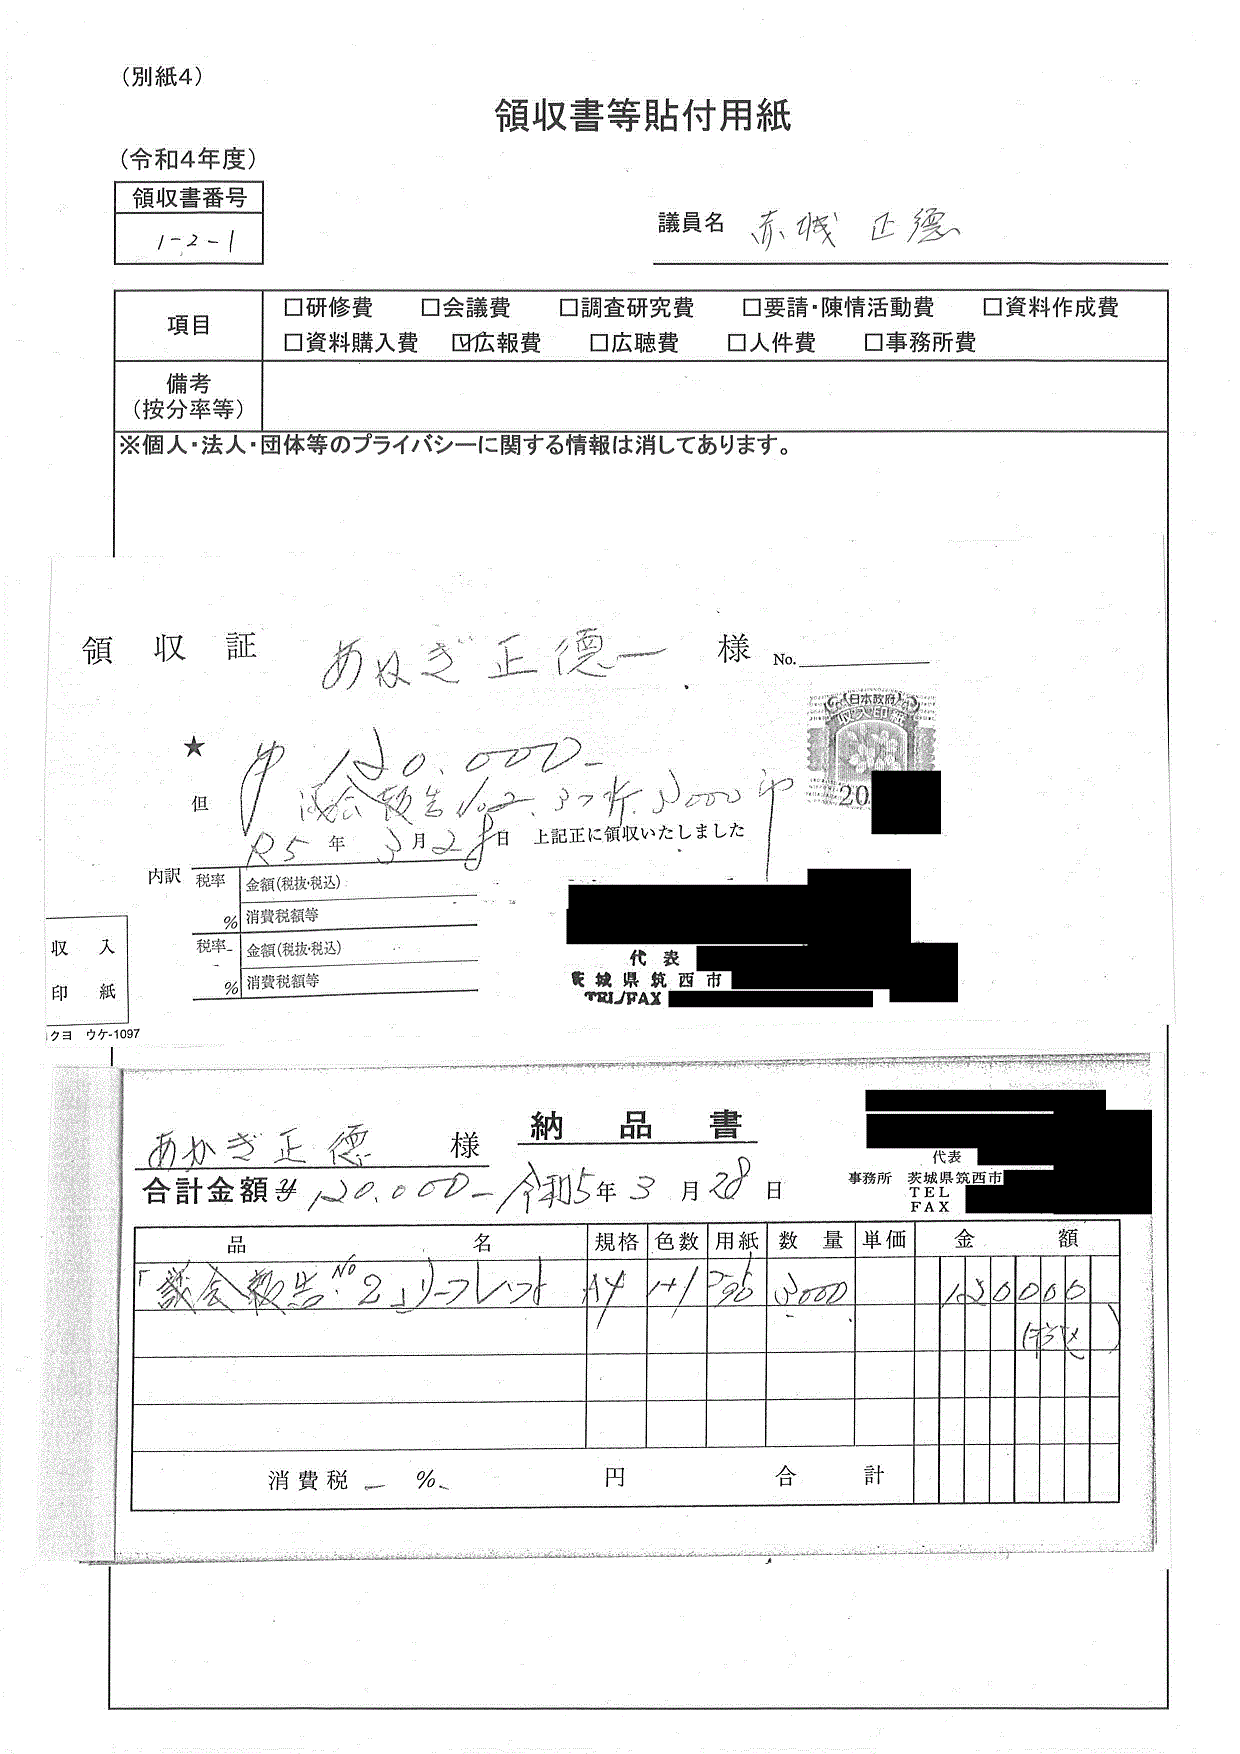 （別紙４）
領収書等貼付用紙
（令和４年度）
領収書番号
1-2-1
議員名 赤城 正德
項目
□研修費 □会議費 □調査研究費 □要請・陳情活動費 □資料作成費
□資料購入費 ☑広報費 □広聴費 □人件費 □事務所費
備考
（按分率等）
※個人・法人・団体等のプライバシーに関する情報は消してあります。
領 収 証 あかぎ正德 様 No.
日本政府
収入印紙
20
★ 120.000-
但 議会報告No.2. 3000
R5年3月28日 上記正に領収いたしました
内訳 税率 金額(税抜・税込)
% 消費税額等
税率 金額(税抜・税込)
% 消費税額等
収 入
印 紙
クヨ ウケ-1097
代 表
茨 城 県 筑 西 市
TEL/FAX
納 品 書
あかぎ正德 様
合計金額 ¥ 120.000- 令和5年3月28日
代表
事務所 茨城県筑西市
TEL
FAX
品 名 規格 色数 用紙 数 量 単価 金 額
「議会報告No2」リーフレット A4 1+1 3000 120000
(税込)
消費税 - %- 円 合 計